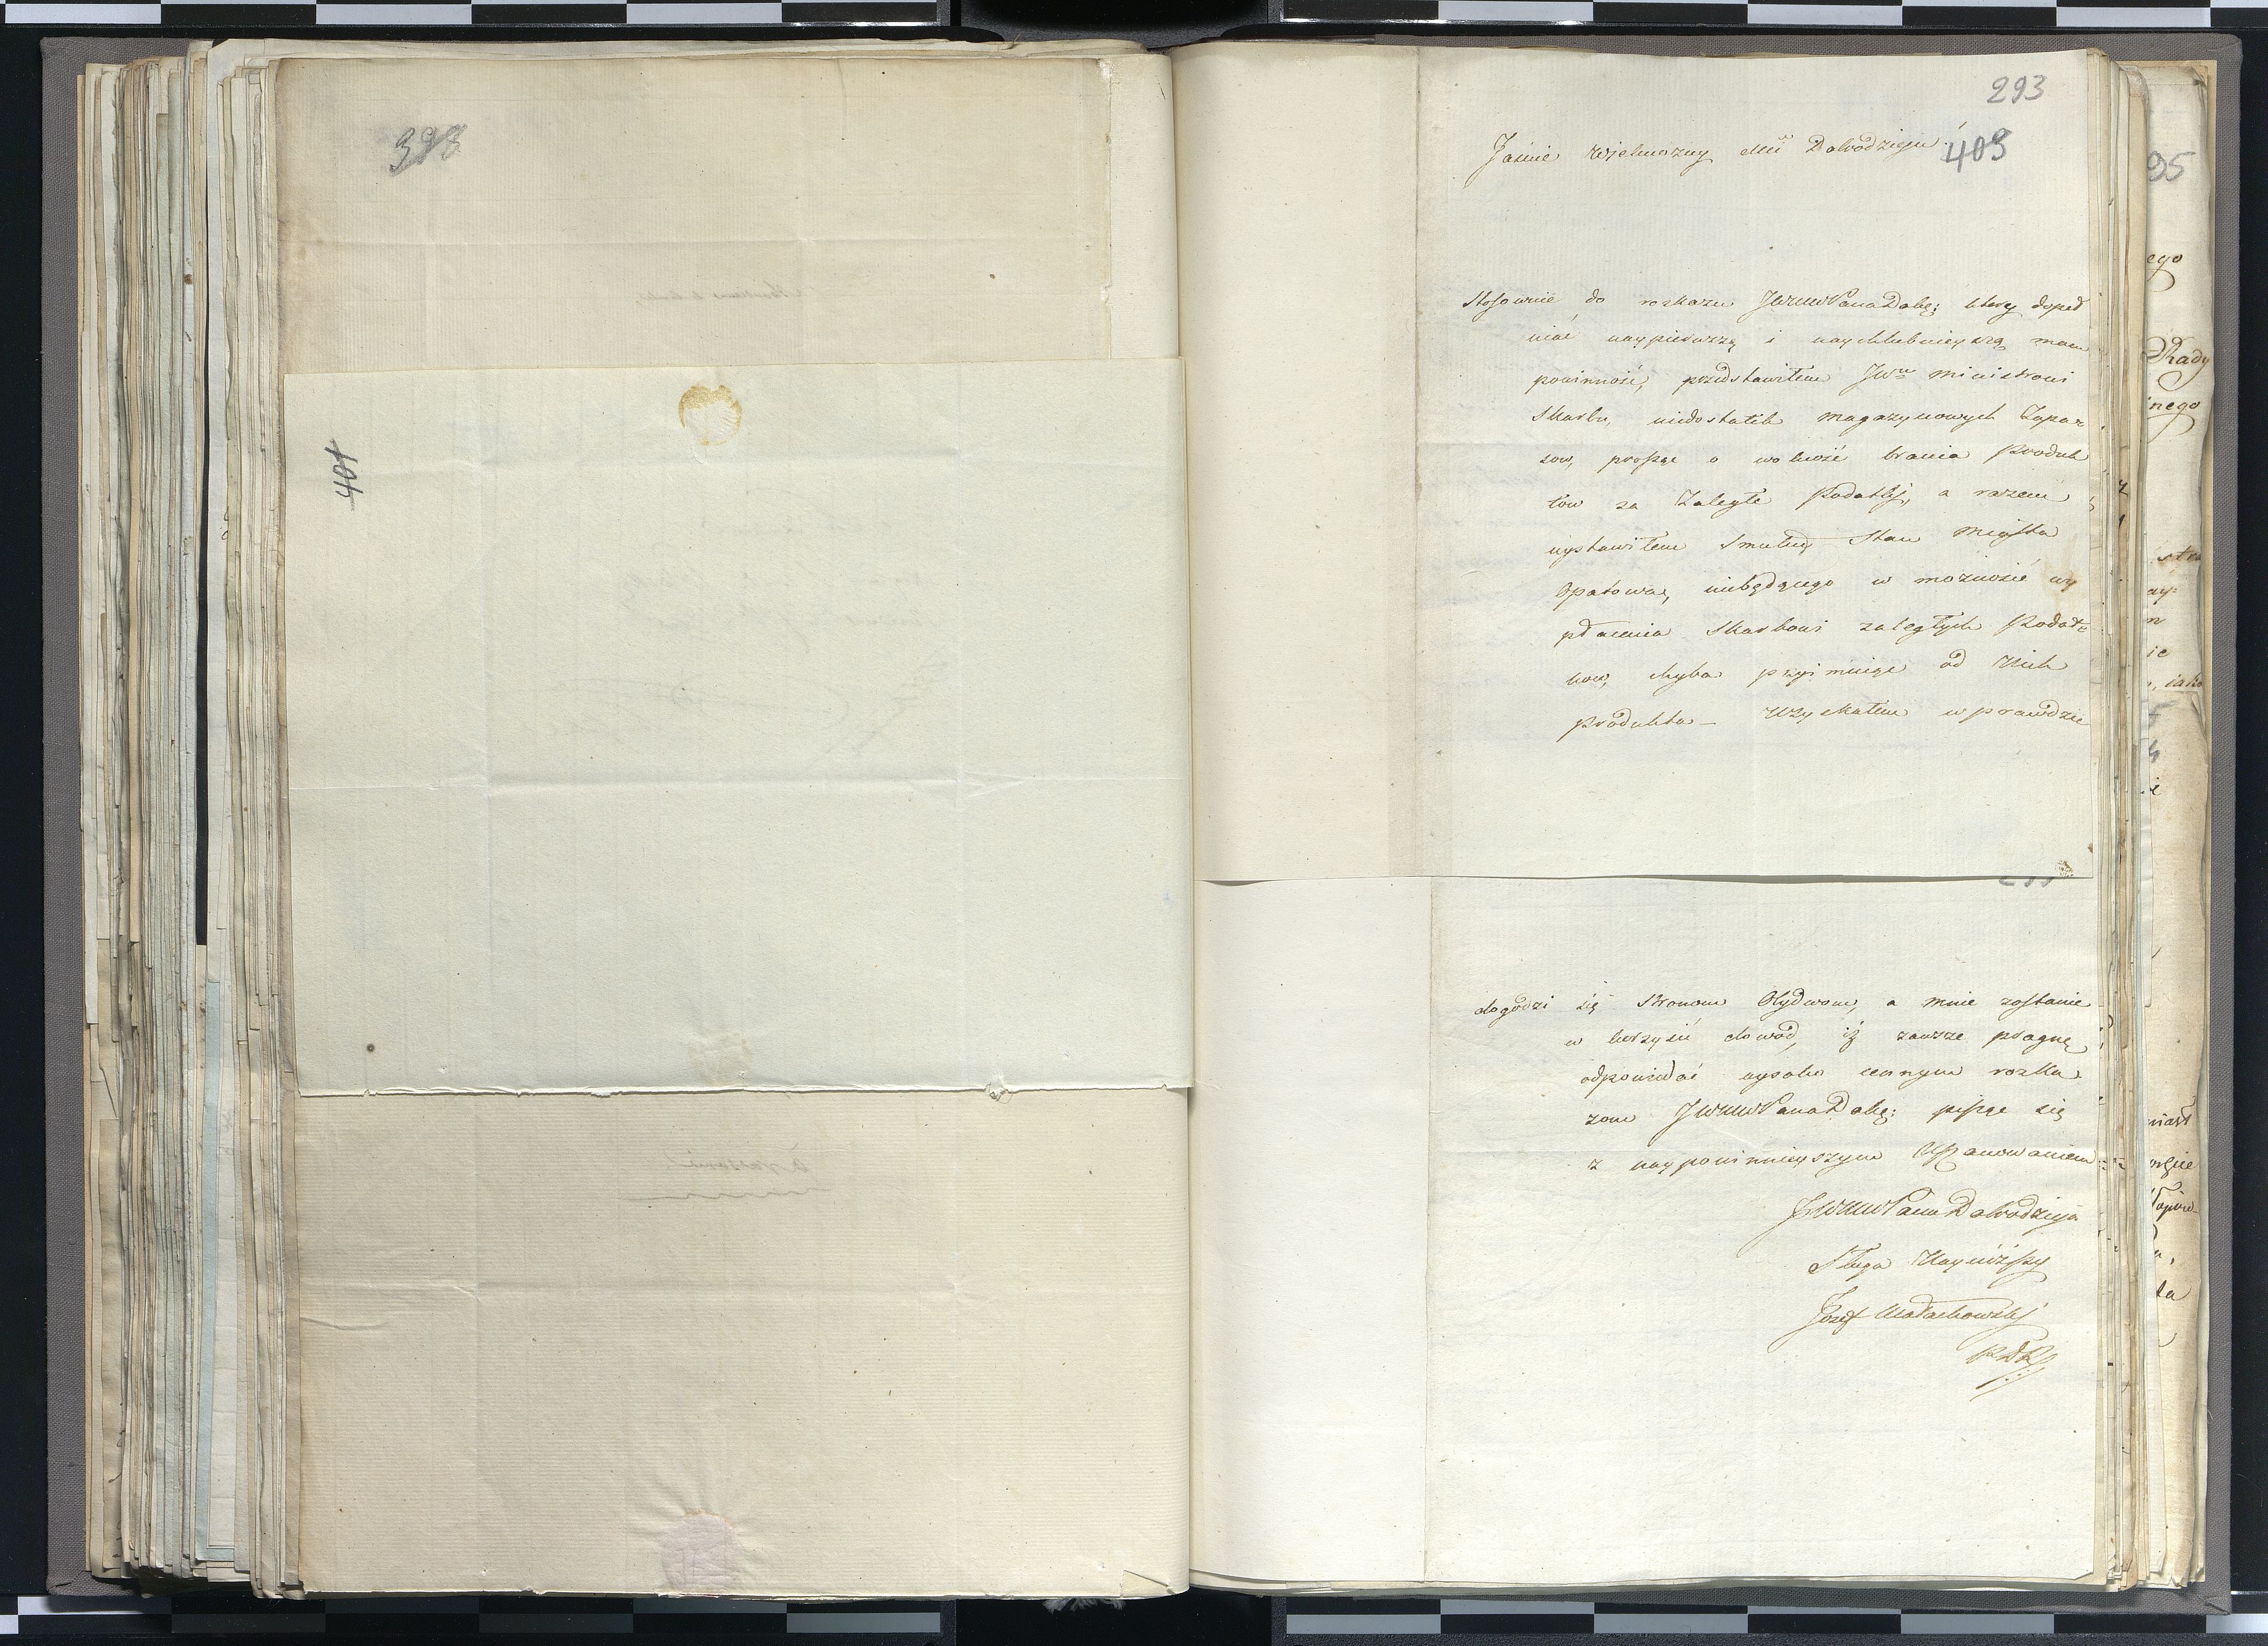 398
401
293
Jaśnie Wielmożny Mci Dobrodzieju!
403
Stosownie do roskazu JWWPana Dobę; ktory dopeł
niać naypierwszą i naychlubnieyszą mam
powinność, przedstawiłem JWmu Ministrowi
Skarbu, niedostatek Magazynowych Zapas
sow, prosząc o wolność brania Produk
tów za Zaległe Podatki, a razem
wystawiłem Smutny Stan Miasta
Opatowa, niebędącego w możności wy
płacenia Skarbowi zaległych Podat=
kow, chyba przyimuiąc od Nich
Produkta – Uzyskałem wprawdzie
dogodzi się Stronom Obydwom, a mnie zostanie
w korzyści dowód, iż zawsze pragnę
odpowiedać wysoko cennym rozka
zom JWWPana Dobę; pisząc się
z naypowinnieyszym Uszanowaniem
JWWPana Dobrodzieja
Sługa Nayniższy
Jozef Małachowski
PDR
95
ego
Rady
nego